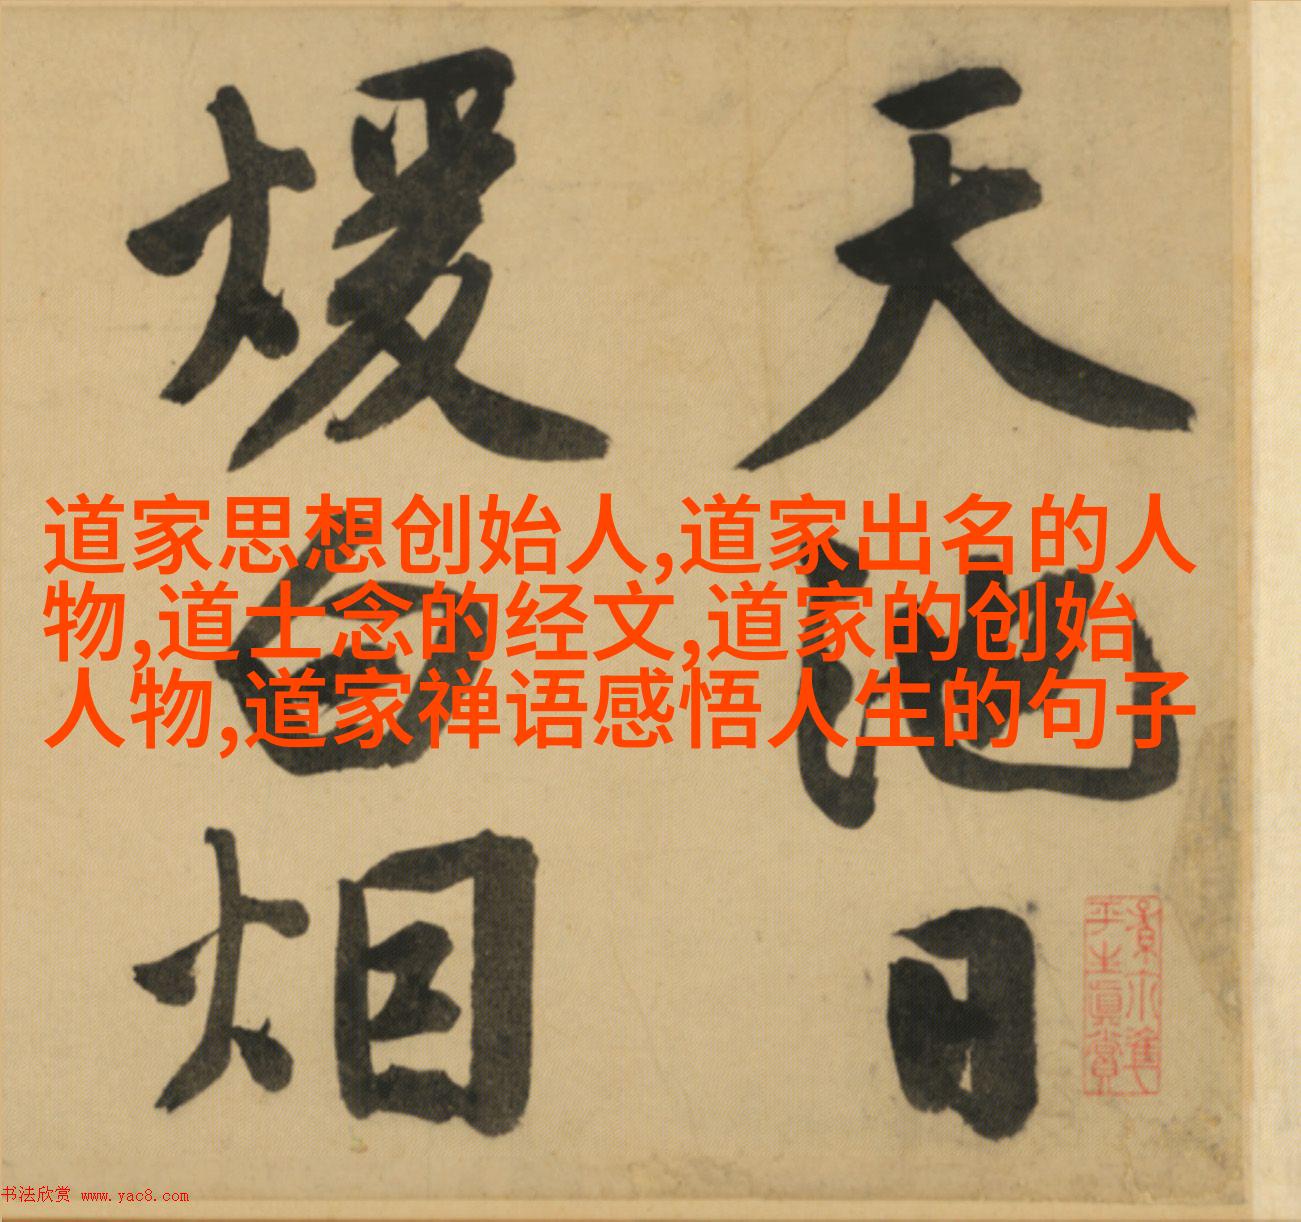 天池日
煖白烟
道家思想创始人,道家出名的人
物,道士念的经文,道家的创始
人物,道家禅语感悟人生的句子
平生真賞
书法欣赏 www.yac8.com